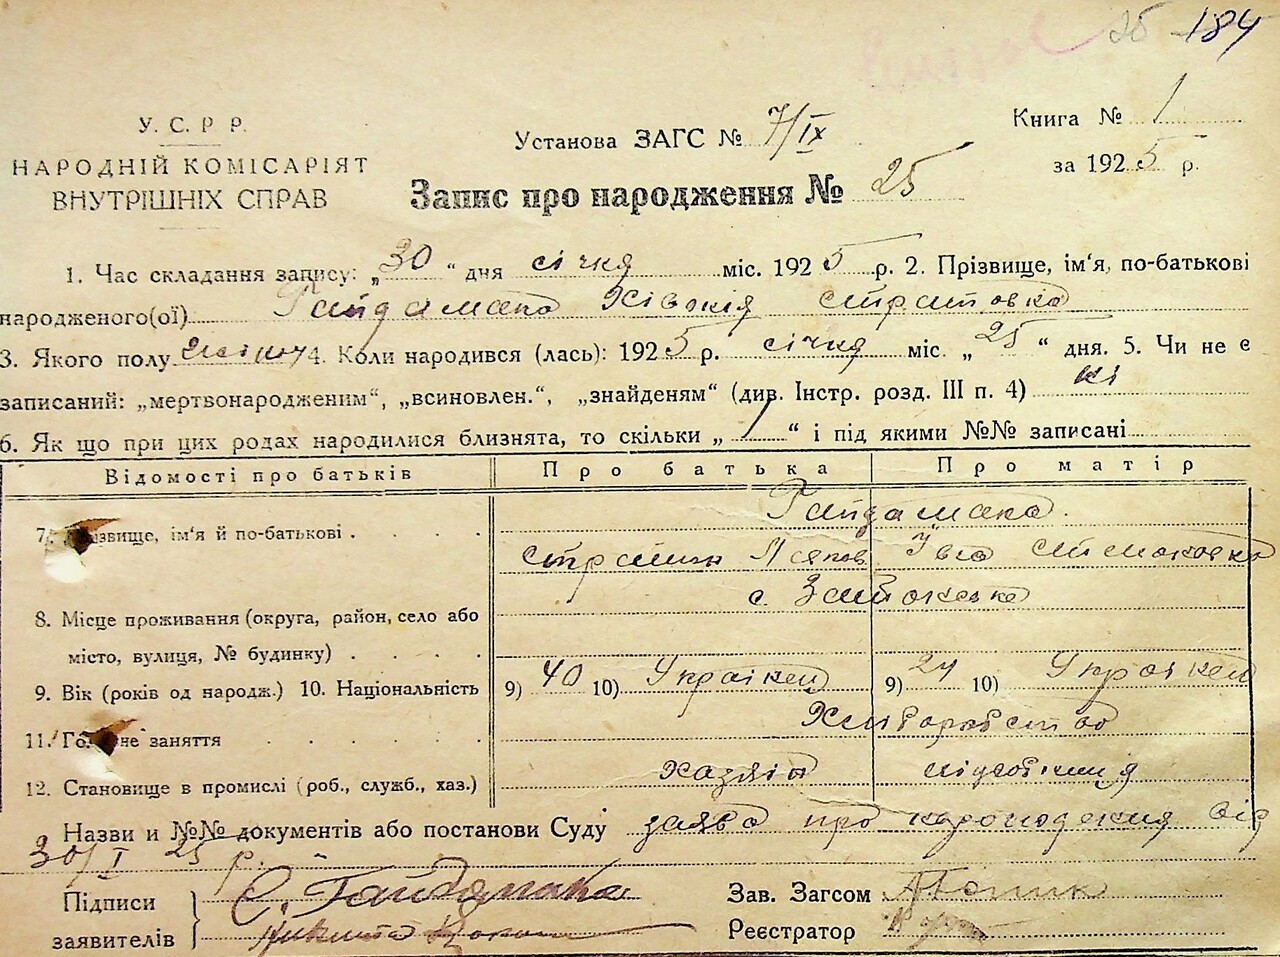 25 184
У. С. Р Р.
НАРОДНІЙ КОМІСАРІЯТ
ВНУТРІШНІХ СПРАВ
Установа ЗАГС № 7/IX
Книга № 1
за 1925 р.
Запис про народження № 25
1. Час складання запису: „30“ дня січня міс. 1925 р. 2. Прізвище, ім‘я, по-батькові
народженого(ої) Гайдамака
3. Якого полу 4. Коли народився (лась): 1925 р. січня міс. „25“ дня. 5. Чи не є
записаний: „мертвонародженим“, „всиновлен.“, „знайденям“ (див. Інстр. розд. III п. 4) ні
6. Як що при цих родах народилися близнята, то скільки „ “ і під якими №№ записані
Відомості про батьків Про батька Про матір
7. Прізвище, ім‘я й по-батькові Гайдамака
8. Місце проживання (округа, район, село або
місто, вулиця, № будинку) с.
9. Вік (років од народж.) 10. Національність 9) 40 10) 9) 10)
11. Головне заняття Хліборобство
12. Становище в промислі (роб., служб., хаз.) хазяін
Назви и №№ документів або постанови Суду заява про народження від
30/I 25 р.
Підписи
заявителів
С. Гайдамака
Зав. Загсом
Реєстратор